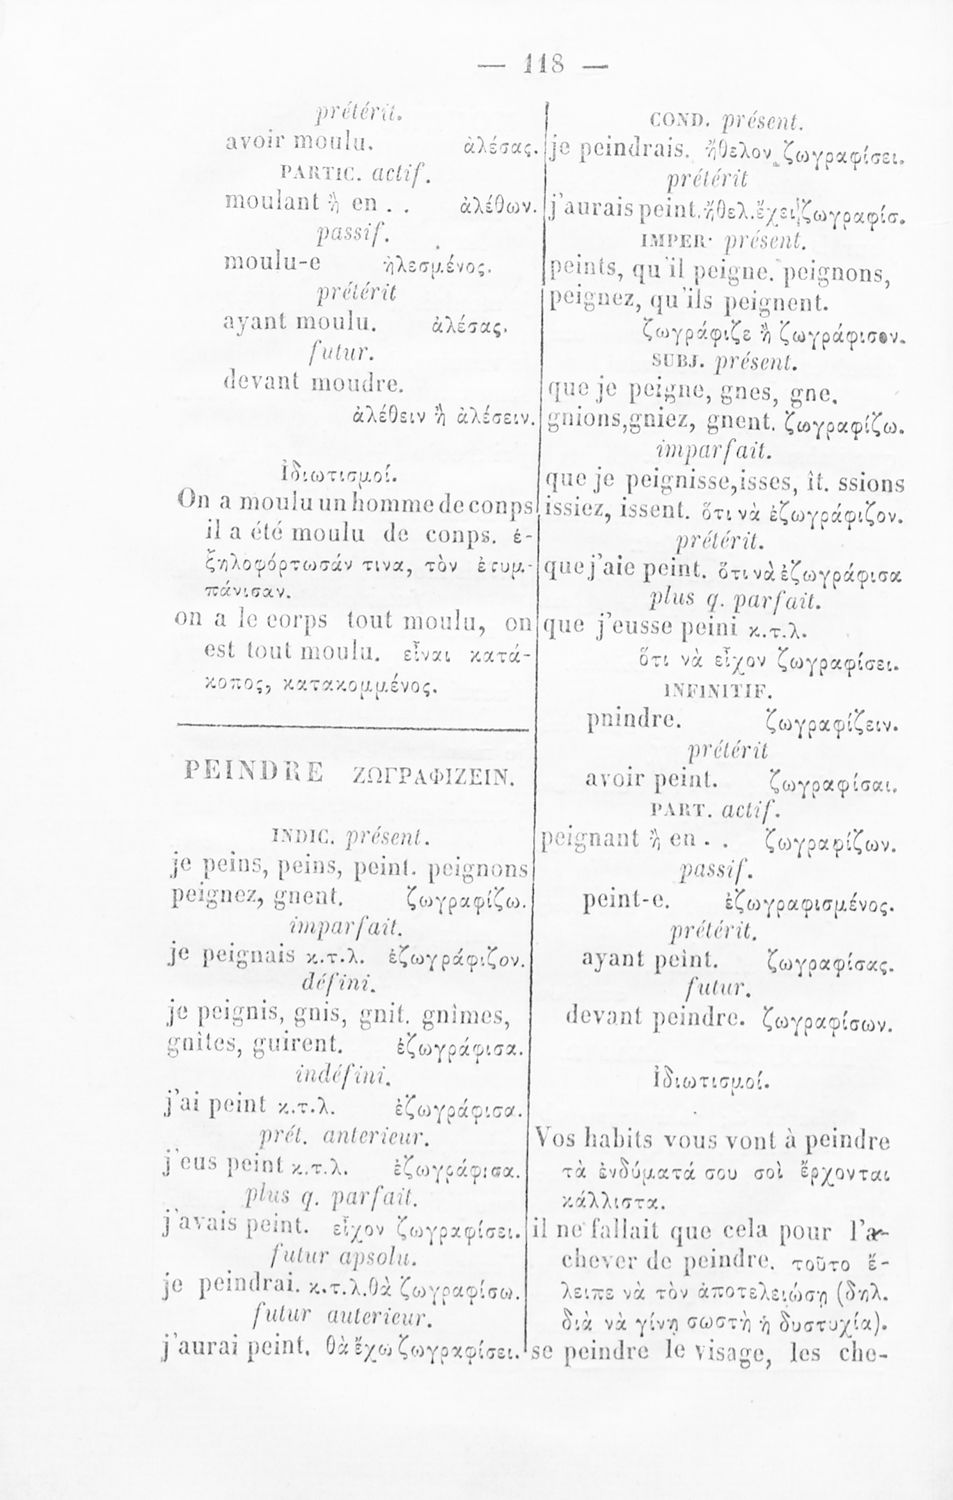 — 118 —
prétérit.
avoir moulu. ἀλέσας.
PARTIC. actif.
moulant ἢ en . . ἀλέθων.
passif.
moulu-e ἠλεσμένος.
prétérit
ayant moulu. ἀλέσας.
futur.
devant moudre.
ἀλέθειν ἢ ἀλέσειν.
ἰδιωτισμοί.
On a moulu un homme de conps
il a été moulu de conps. ἐ-
ξηλοφόρτωσάν τινα, τὸν ἐτυμ-
πάνισαν.
on a le corps tout moulu, on
est tout moulu. εἶναι κατά-
κοπος, κατακομμένος.
PEINDRE ΖΩΓΡΑΦΙΖΕΙΝ.
INDIC. présent.
je peins, peins, peint. peignons
peignez, gnent. ζωγραφίζω.
imparfait.
je peignais κ.τ.λ. ἐζωγράφιζον.
défini.
je peignis, gnis, gnit. gnîmes,
gnîtes, guirent. ἐζωγράφισα.
indéfini.
j'ai peint κ.τ.λ. ἐζωγράφισα.
prét. anterieur.
j'eus peint κ.τ.λ. ἐζωγράφισα.
plus q. parfait.
j'avais peint. εἶχον ζωγραφίσει.
futur apsolu.
je peindrai. κ.τ.λ. θὰ ζωγραφίσω.
futur auterieur.
j'aurai peint. θὰ ἔχω ζωγραφίσει.
COND. présent.
je peindrais. ἤθελον ζωγραφίσει.
prétérit
j'aurais peint. ἤθελ. ἔχει ζωγραφίσ.
IMPER· présent.
peints, qu'il peigne. peignons,
peignez, qu'ils peignent.
ζωγράφιζε ἢ ζωγράφισον.
SUBJ. présent.
que je peigne, gnes, gne.
gnions, gniez, gnent. ζωγραφίζω.
imparfait.
que je peignisse, isses, ît. ssions
issiez, issent. ὅτι νὰ ἐζωγράφιζον.
prétérit.
que j'aie peint. ὅτι νὰ ἐζωγράφισα
plus q. parfait.
que j'eusse peini κ.τ.λ.
ὅτι νὰ εἶχον ζωγραφίσει.
INFINITIF.
pnindre. ζωγραφίζειν.
prétérit
avoir peint. ζωγραφίσαι.
PART. actif.
peignant ἢ en . . ζωγραφίζων.
passif.
peint-e. ἐζωγραφισμένος.
prétérit.
ayant peint. ζωγραφίσας.
futur.
devant peindre. ζωγραφίσων.
ἰδιωτισμοί.
Vos habits vous vont à peindre
τὰ ἐνδύματά σου σοὶ ἔρχονται
κάλλιστα.
il ne fallait que cela pour l'a-
chever de peindre. τοῦτο ἔ-
λειπε νὰ τὸν ἀποτελειώσῃ (δηλ.
διὰ νὰ γίνῃ σωστὴ ἡ δυστυχία).
se peindre le visage, les che-